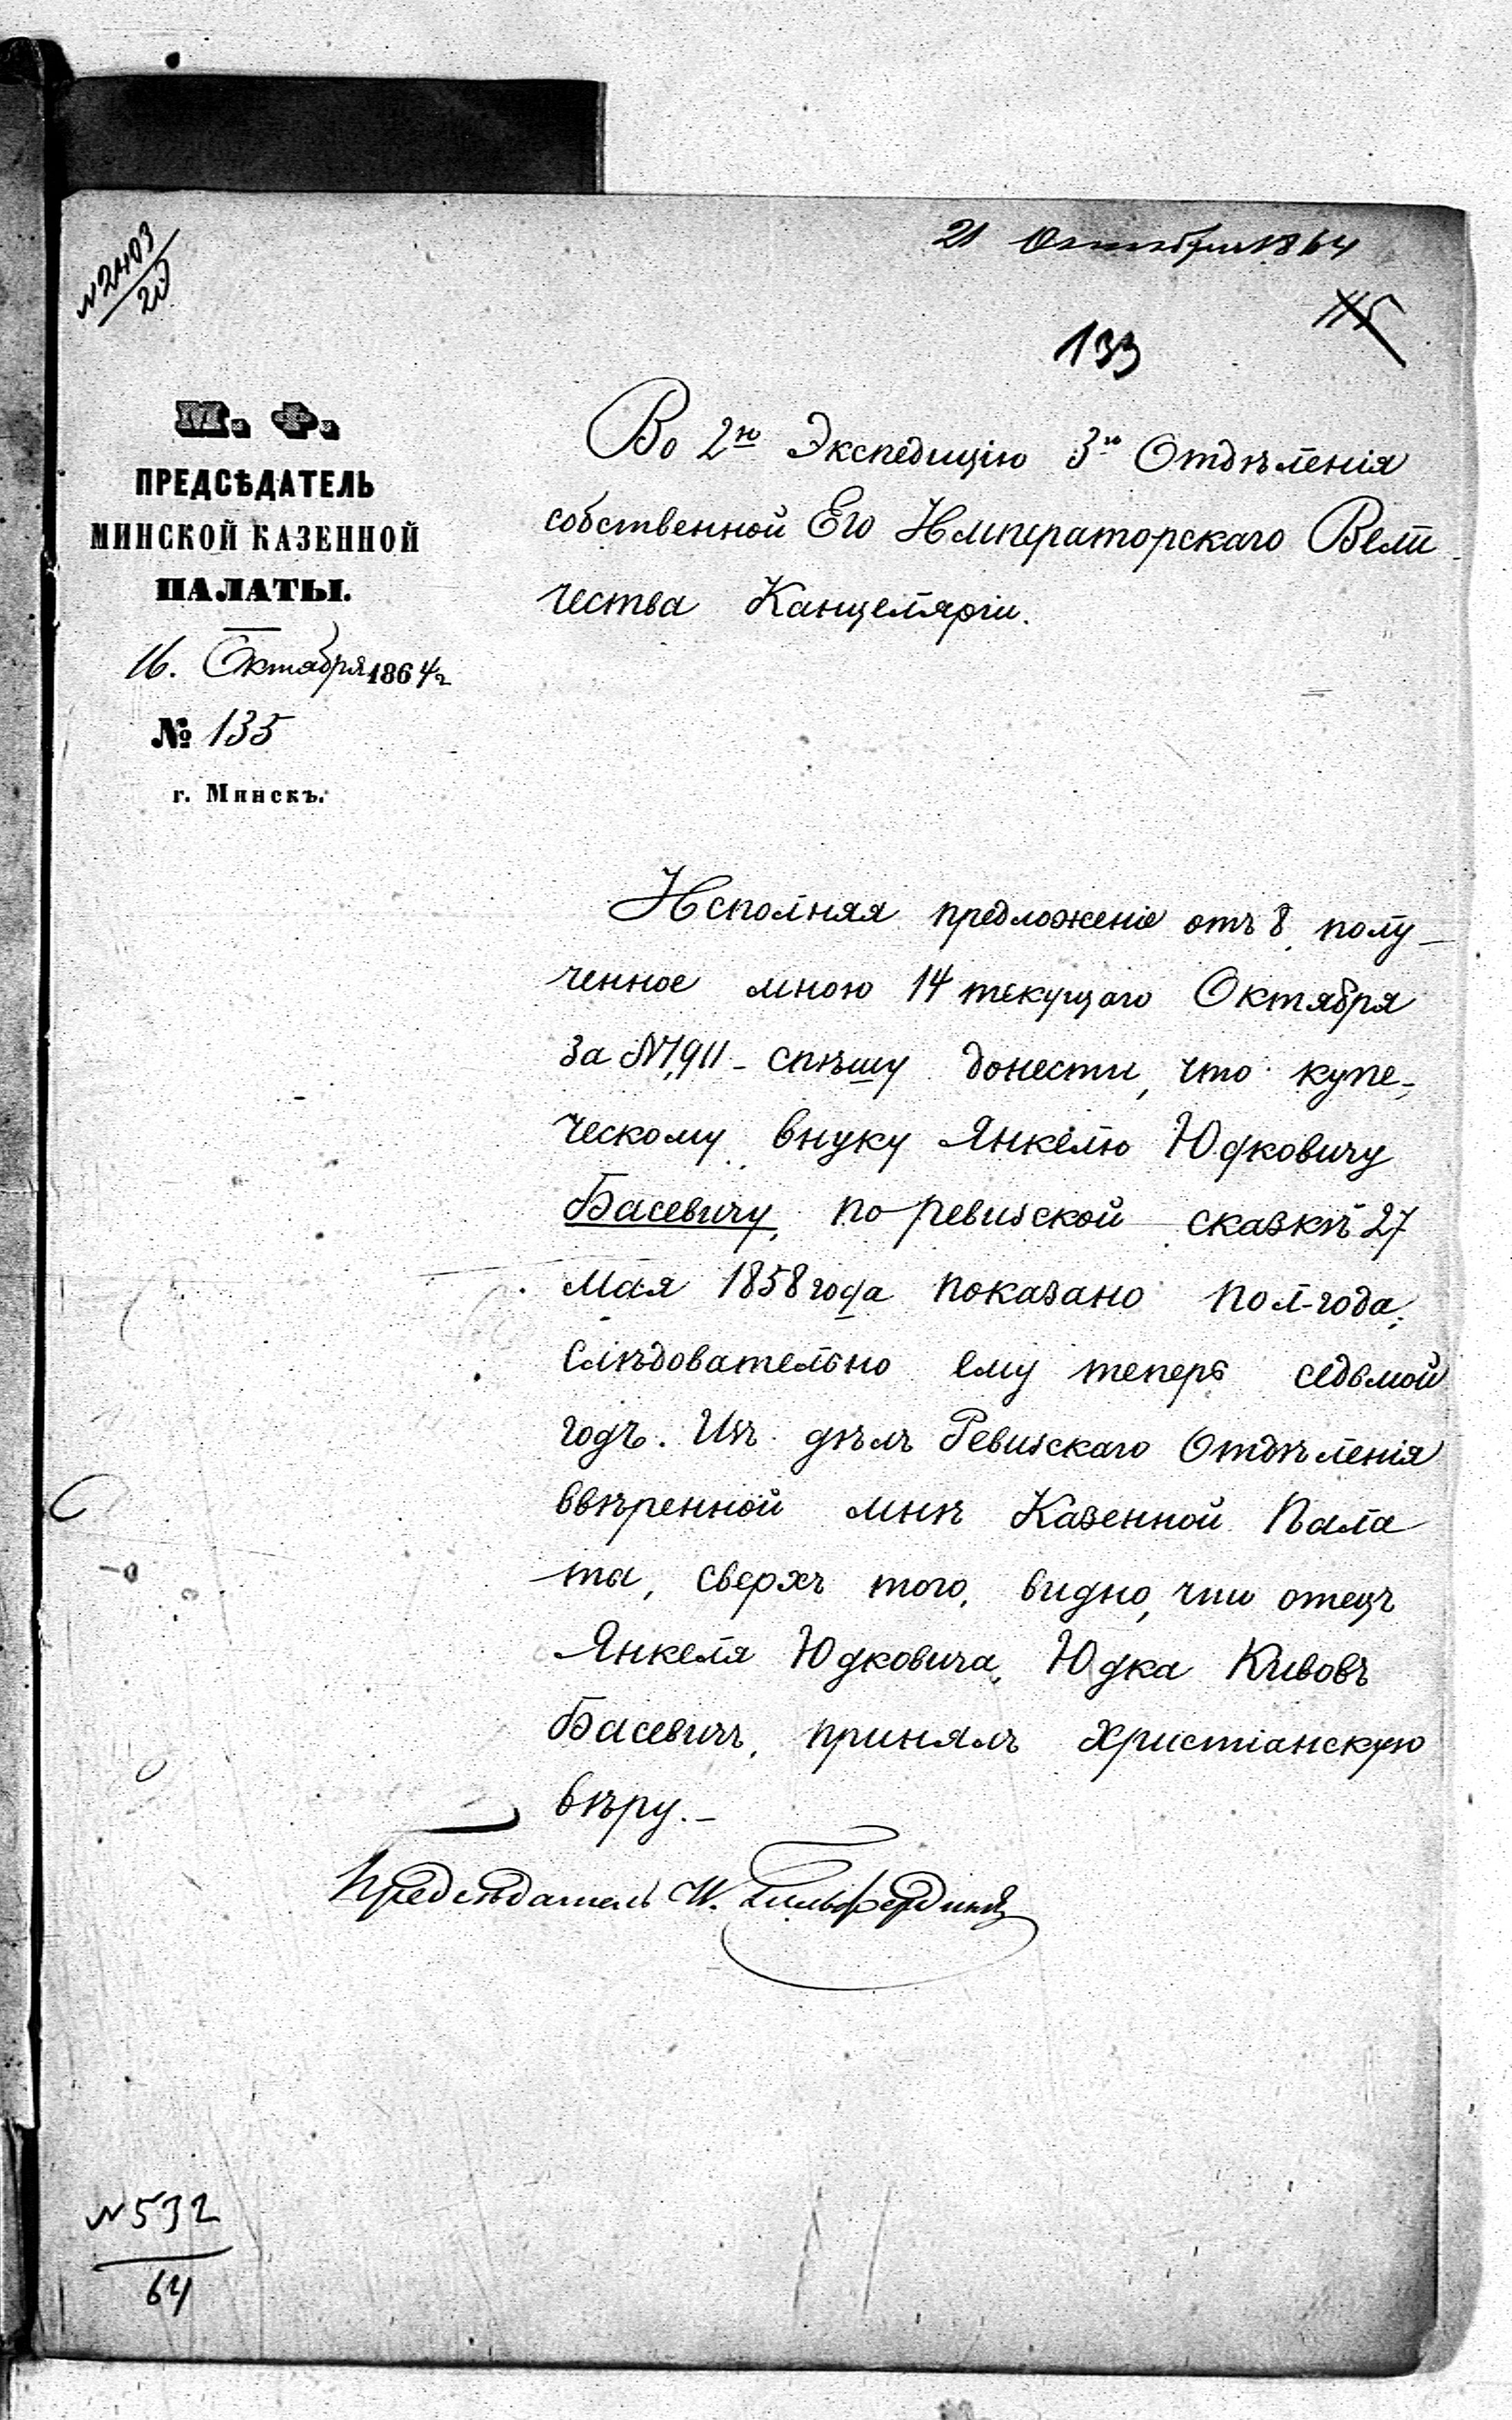 №2403
20
21 Октября 1864
133
М. Ф.
ПРЕДСѢДАТЕЛЬ
МИНСКОЙ КАЗЕННОЙ
ПАЛАТЫ.
16. Октября 1864 г
№ 135
г. Минскъ.
Во 2ю Экспедицію 3го Отдѣленія
собственной Его Императорскаго Вели
чества Канцеляріи.
Исполняя предложеніе отъ 8, полу-
ченное мною 14 текущаго Октября
за №1,911 - спѣшу донести, что купе-
ческому внуку Янкелю Юдковичу
Басевичу, по ревизской сказкѣ 27
Мая 1858 года показано пол-года;
Слѣдовательно ему теперь седьмой
годъ. Изъ дѣлъ Ревизскаго Отдѣленія
ввѣренной мнѣ Казенной Пала
ты, сверхъ того, видно, что отецъ
Янкеля Юдковича, Юдка Кивовъ
Басевичъ, принялъ Христіанскую
вѣру.-
Предсѣдатель И. Гильфердингъ
№532
64